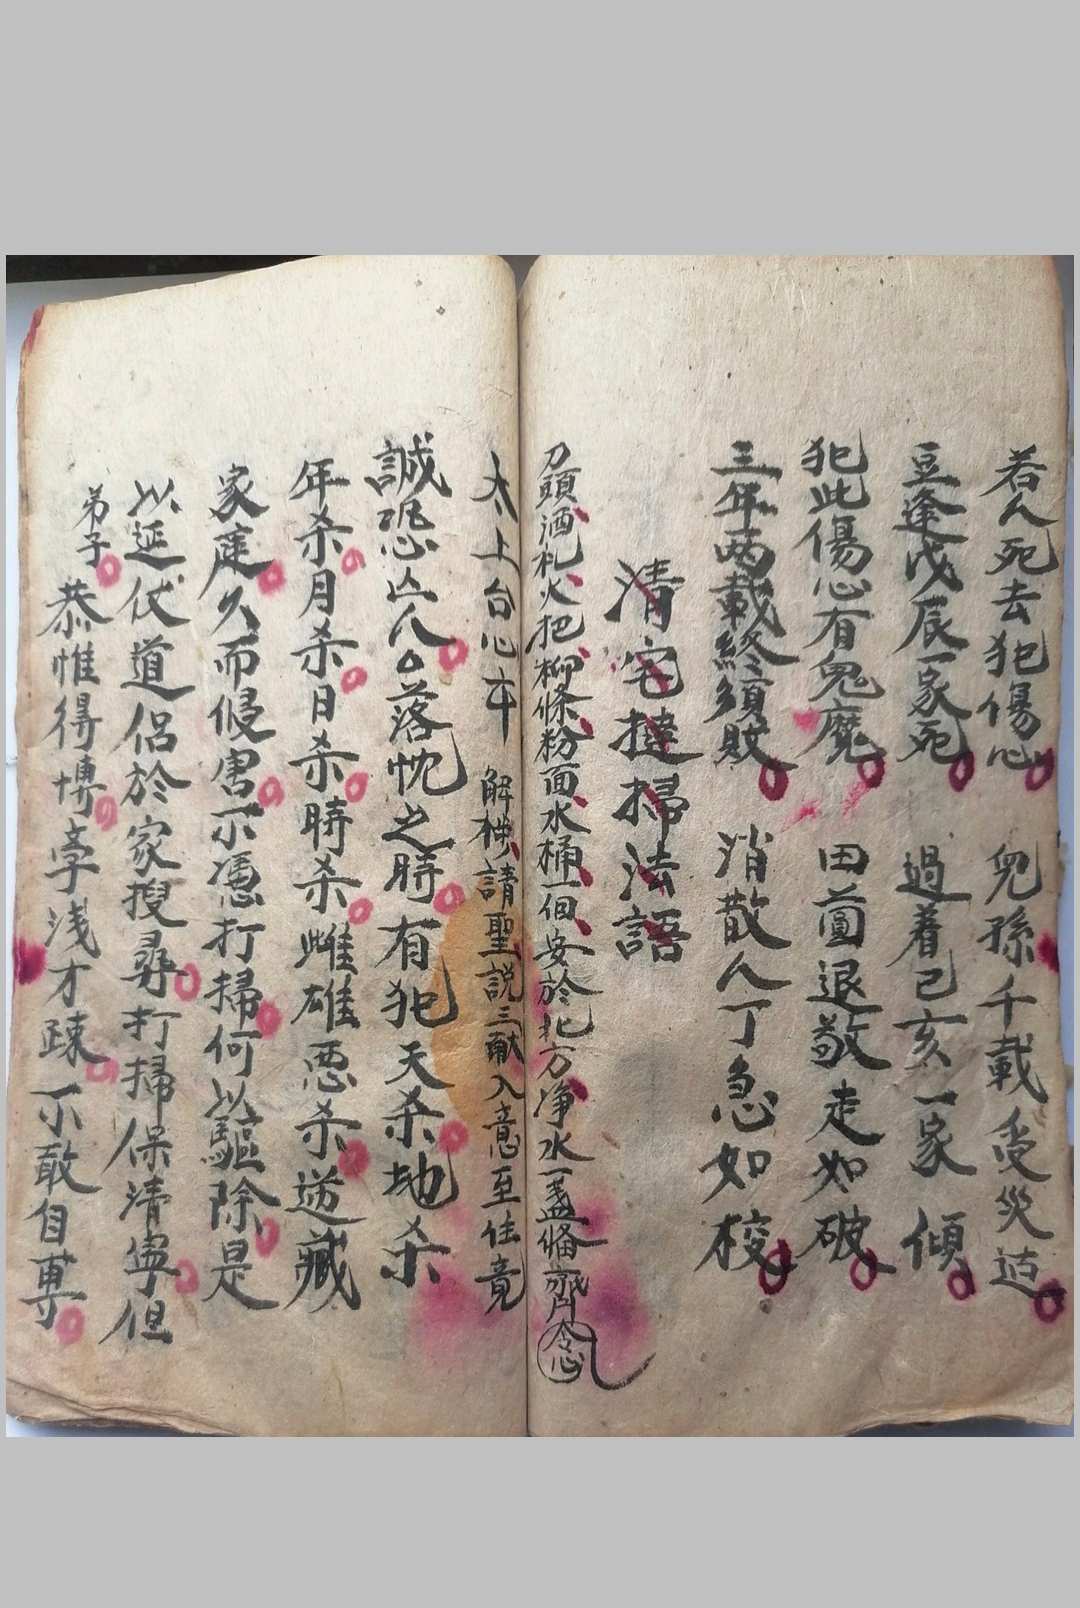 若人死去犯傷心 兒孫千載受災
豆逢戊辰一家死 過着己亥一家傾
犯此傷心有鬼魔 田園退敬走如破
三年兩載終須敗 消散人丁急如梭
清宅撻掃法語
刀頭酒札火把柳條粉面水桶一個安於北方净水一盞偹齊念
太上台心卞 解穢請聖説三献入意至住竟
誠恐亡人落忱之時有犯天杀地杀
年杀月杀日杀時杀雌雄惡杀遊藏
家庭久而侵害不憑打掃何以驅除是
以延仗道侣於家搜尋打掃保清寧但
弟子恭惟得博孝浅才疎不敢自專